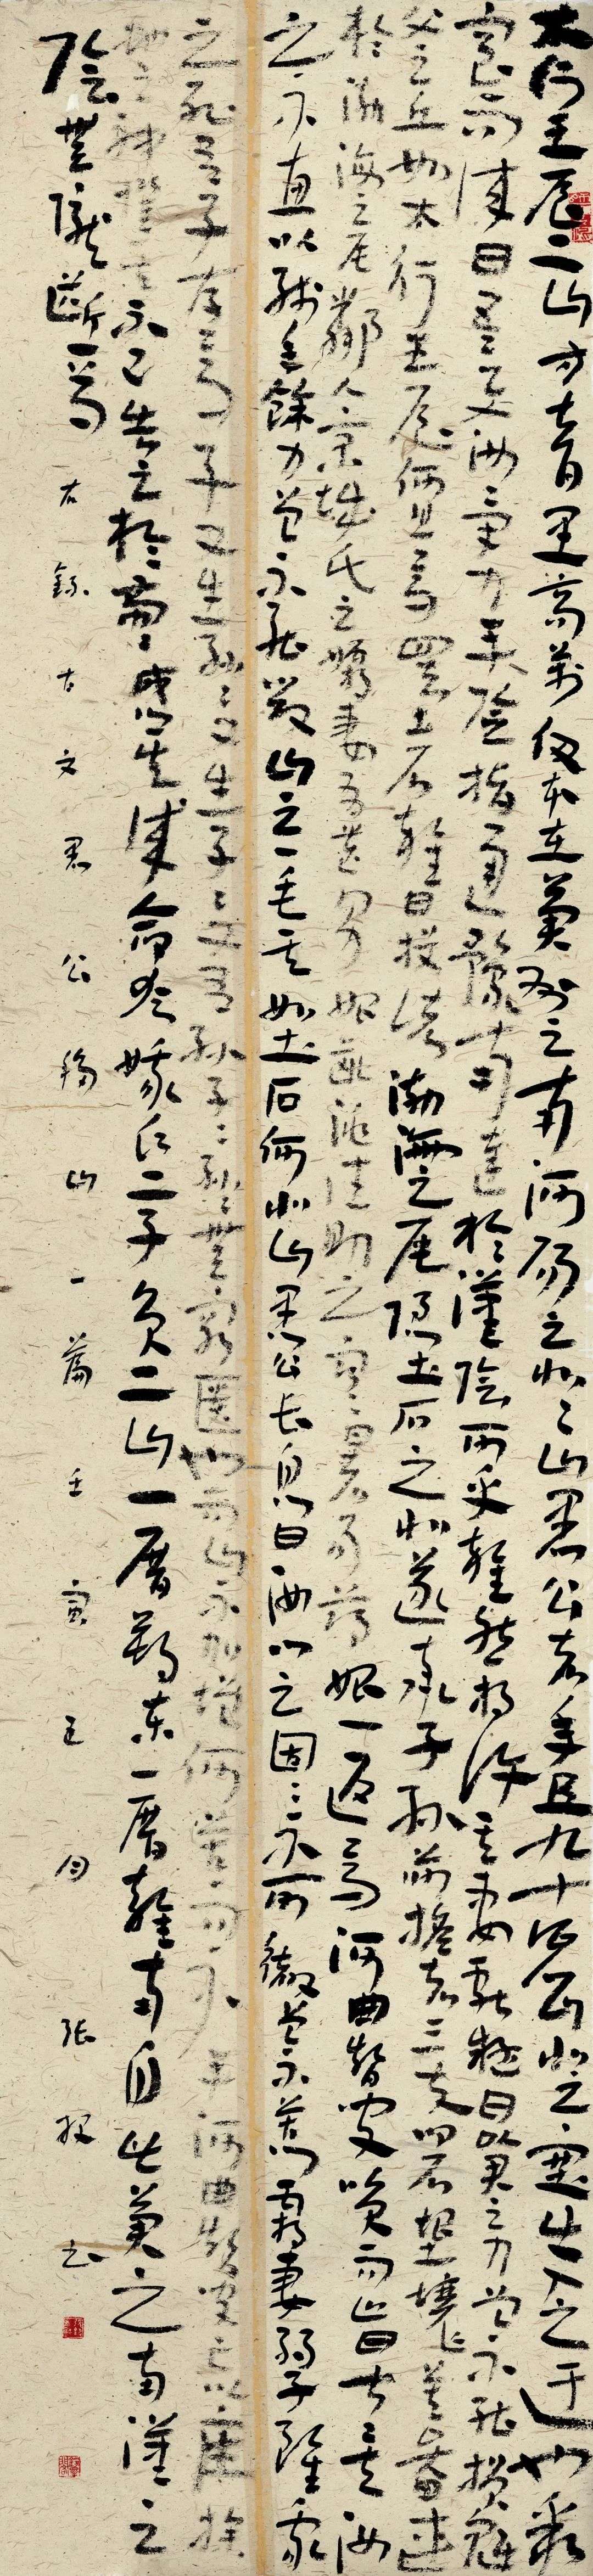 太行王屋二山方七百里高萬仞本在冀州之南河陽之北々山愚公者年且九十北之塞出入之迂也聚
室而謀曰吾與汝畢力平險指通豫南達於漢陰可乎雜然相許其妻獻疑曰以君之力曾不能損魁
父之丘如太行王屋何且焉置土石雜曰投諸渤海之尾隱土石之北遂率子孫荷擔者三夫叩石墾壤箕畚運
於渤海之尾鄰人京城氏之孀妻有遺男始齔跳往助之寒暑易節始一返焉河曲智叟笑而止曰甚矣汝
之不惠以殘年餘力曾不能毀山之一毛其如土石何北山愚公長息曰汝心之固々不可徹曾不若孀妻弱子雖我
之死有子存焉子又生孫々又生子々又有孫子々孫々無窮匱也而山不加增何苦而不平河曲智叟亡以應操
蛇之神聞之不已告之於帝々感其誠命夸娥氏二子負二山一厝朔東一厝雍南自此冀之南漢之
陰無隴斷焉 右錄古文愚公移山一篇壬寅正月張書